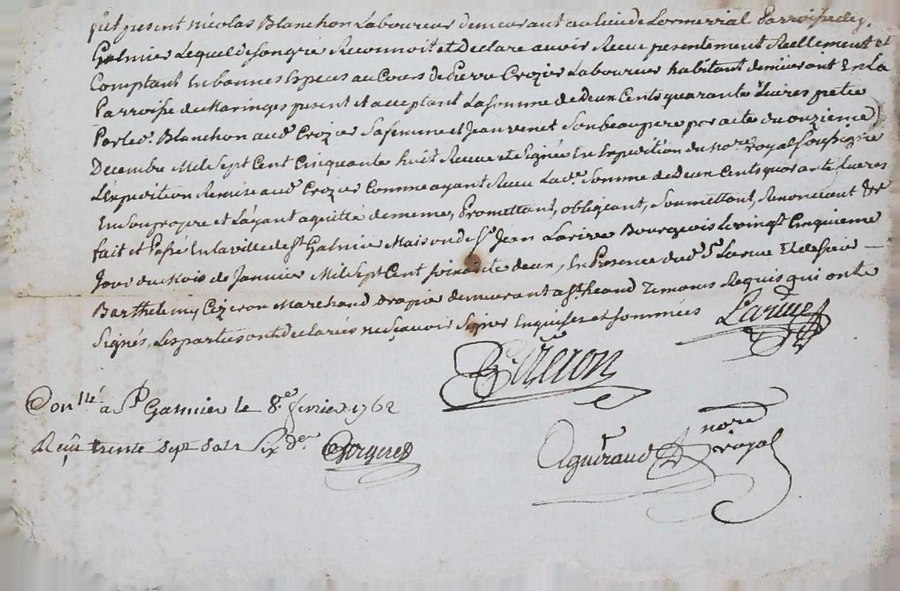 fut present nicolas Blanchon Laboureur demeurant au lieu de Lormerial Parroisse de st
Galmier Lequel de Son gré Reconnoit et declare avoir Recu presentement Reellement et
Comptant En bonnes Especes au Cours de Pierre Crozier Laboureur habitant demeurant En La
Parroisse de Maringes present et acceptant La Somme de deux Cents quarante Livres
Blanchon aud Crozier Sa femme et Jean Son beaupere par acte du onzieme
Decembre Mil Sept Cent Cinquante huit Receue et Signée En Expedition du nore royal Soussigné
L'expedition Remise aud Crozier Comme ayant Recu Lade Somme de deux Cents quarante Livres
En Son propre et L'ayant aquitté de meme, Promettant, obligeant, Soumettant, Renoncant &c
fait et Passé En la ville de st Galmier Maison de Sr Jean Larue Bourgeois Le vingt Cinquieme
Jour du Mois de Janvier Mil Sept Cent Soixante deux, En Presence dud Sr Larue Et de Sieur
Barthelemy Cezeron Marchand Drapier demeurant a St heand Temoins Requis qui ont
Signés, Les parties ont declarées ne Sçavoir Signer Enquises et Sommées Larüe
B. Cézeron
Con lle a St Galmier le 8.e fevrier 1762
Reçu trente sept sols Six der
Aguiraud nore royal